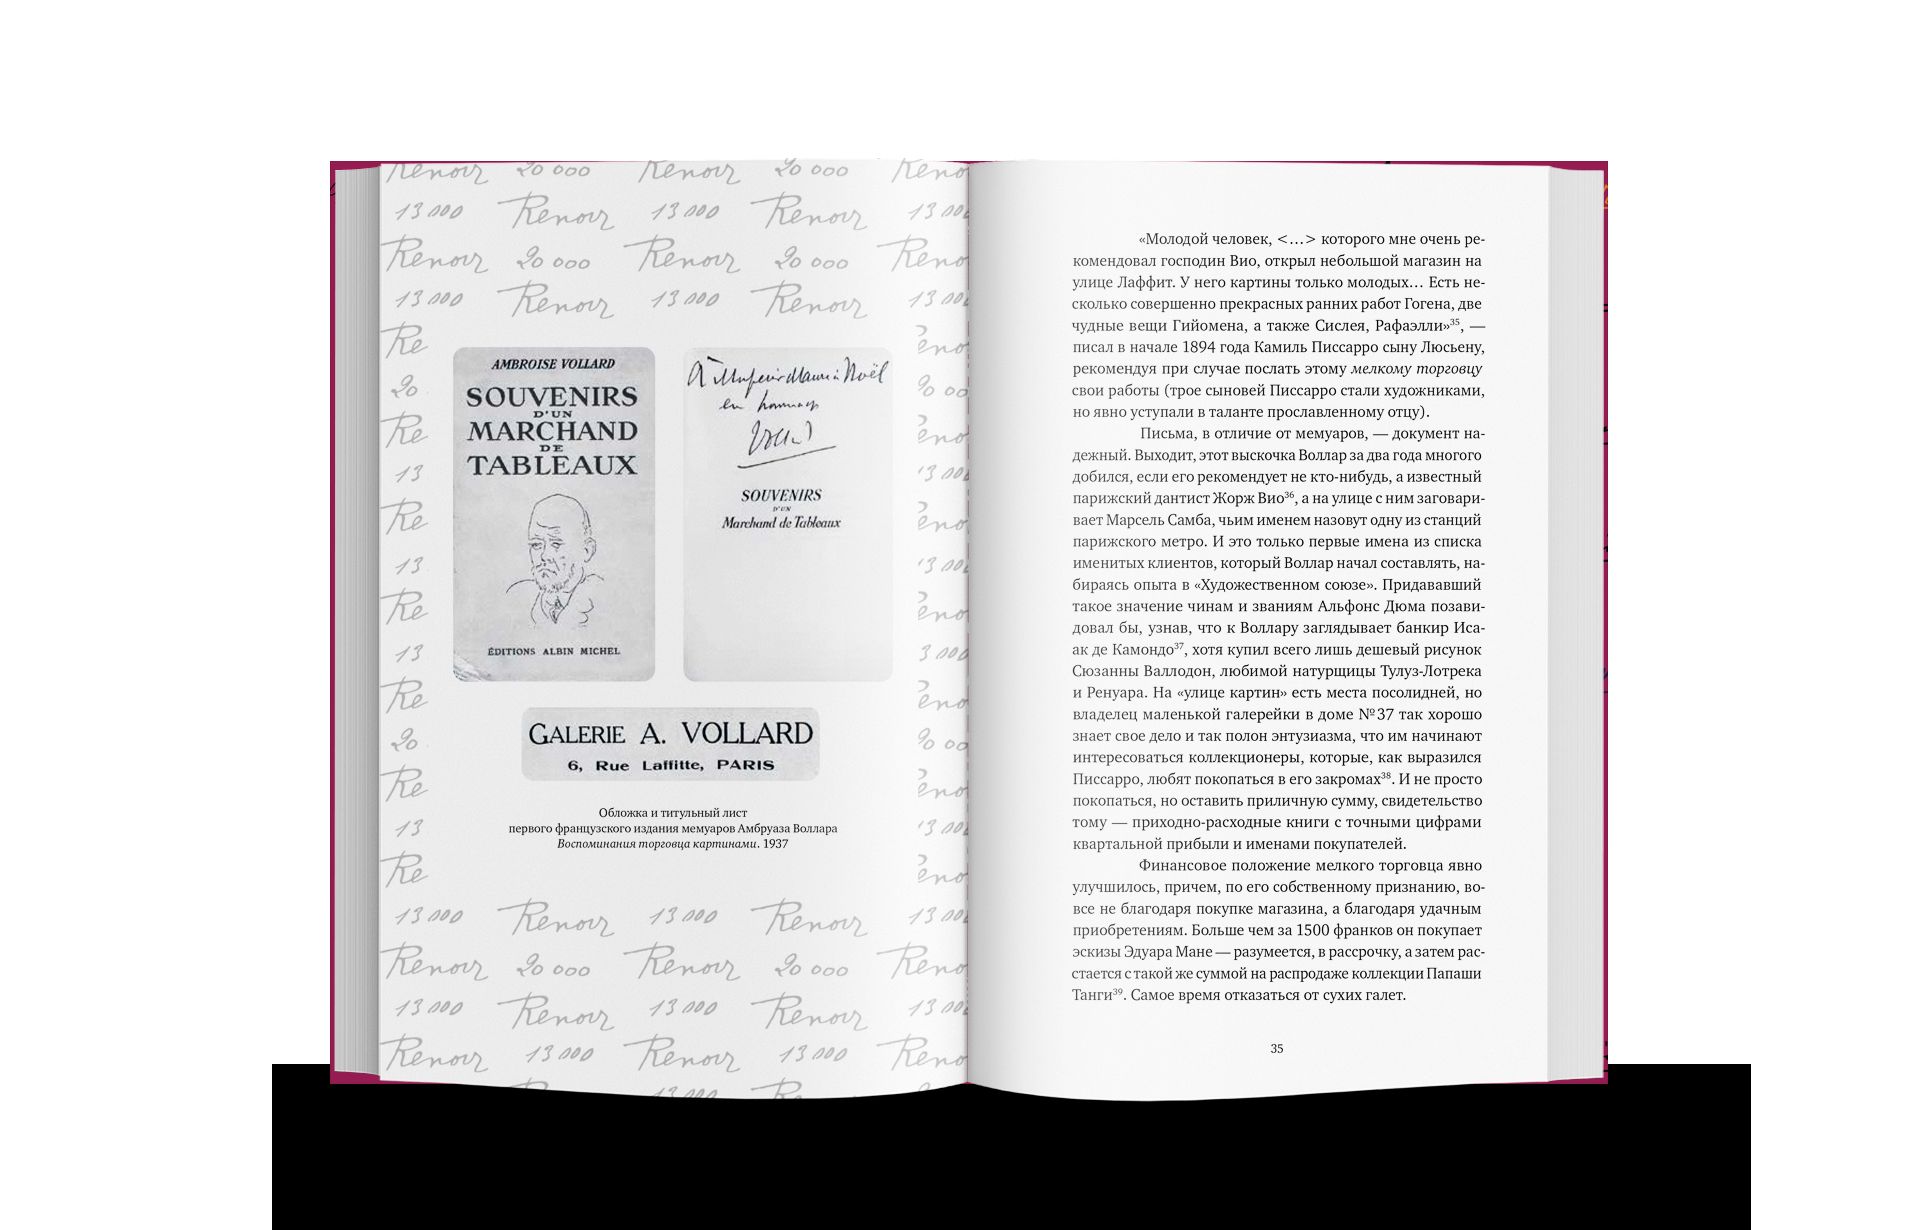 Renoir 20 000 Renoir 20 000 Reno
13 000 Renoir 13 000 Renoir 13 00
Renoir 20 000 Renoir 20 000 Reno
13 000 Renoir 13 000 Renoir 13 00
Re
20
Re
13
Re
13
Re
13
Re
20
Re
13
Re
AMBROISE VOLLARD
SOUVENIRS
D'UN
MARCHAND
DE
TABLEAUX
ÉDITIONS ALBIN MICHEL
à Noël
en hommage
Vollard
SOUVENIRS
D'UN
Marchand de Tableaux
GALERIE A. VOLLARD
6, Rue Laffitte, PARIS
Обложка и титульный лист
первого французского издания мемуаров Амбруаза Воллара
Воспоминания торговца картинами. 1937
13 000 Renoir 13 000 Renoir 13 00
Renoir 20 000 Renoir 20 000 Reno
13 000 Renoir 13 000 Renoir 13 00
Renoir 13 000 Renoir 13 000 Reno
«Молодой человек, <…> которого мне очень ре-
комендовал господин Вио, открыл небольшой магазин на
улице Лаффит. У него картины только молодых… Есть не-
сколько совершенно прекрасных ранних работ Гогена, две
чудные вещи Гийомена, а также Сислея, Рафаэлли»35, —
писал в начале 1894 года Камиль Писсарро сыну Люсьену,
рекомендуя при случае послать этому мелкому торговцу
свои работы (трое сыновей Писсарро стали художниками,
но явно уступали в таланте прославленному отцу).
Письма, в отличие от мемуаров, — документ на-
дежный. Выходит, этот выскочка Воллар за два года многого
добился, если его рекомендует не кто-нибудь, а известный
парижский дантист Жорж Вио36, а на улице с ним заговари-
вает Марсель Самба, чьим именем назовут одну из станций
парижского метро. И это только первые имена из списка
именитых клиентов, который Воллар начал составлять, на-
бираясь опыта в «Художественном союзе». Придававший
такое значение чинам и званиям Альфонс Дюма позави-
довал бы, узнав, что к Воллару заглядывает банкир Иса-
ак де Камондо37, хотя купил всего лишь дешевый рисунок
Сюзанны Валлодон, любимой натурщицы Тулуз-Лотрека
и Ренуара. На «улице картин» есть места посолидней, но
владелец маленькой галерейки в доме №37 так хорошо
знает свое дело и так полон энтузиазма, что им начинают
интересоваться коллекционеры, которые, как выразился
Писсарро, любят покопаться в его закромах38. И не просто
покопаться, но оставить приличную сумму, свидетельство
тому — приходно-расходные книги с точными цифрами
квартальной прибыли и именами покупателей.
Финансовое положение мелкого торговца явно
улучшилось, причем, по его собственному признанию, во-
все не благодаря покупке магазина, а благодаря удачным
приобретениям. Больше чем за 1500 франков он покупает
эскизы Эдуара Мане — разумеется, в рассрочку, а затем рас-
стается с такой же суммой на распродаже коллекции Папаши
Танги39. Самое время отказаться от сухих галет.
35